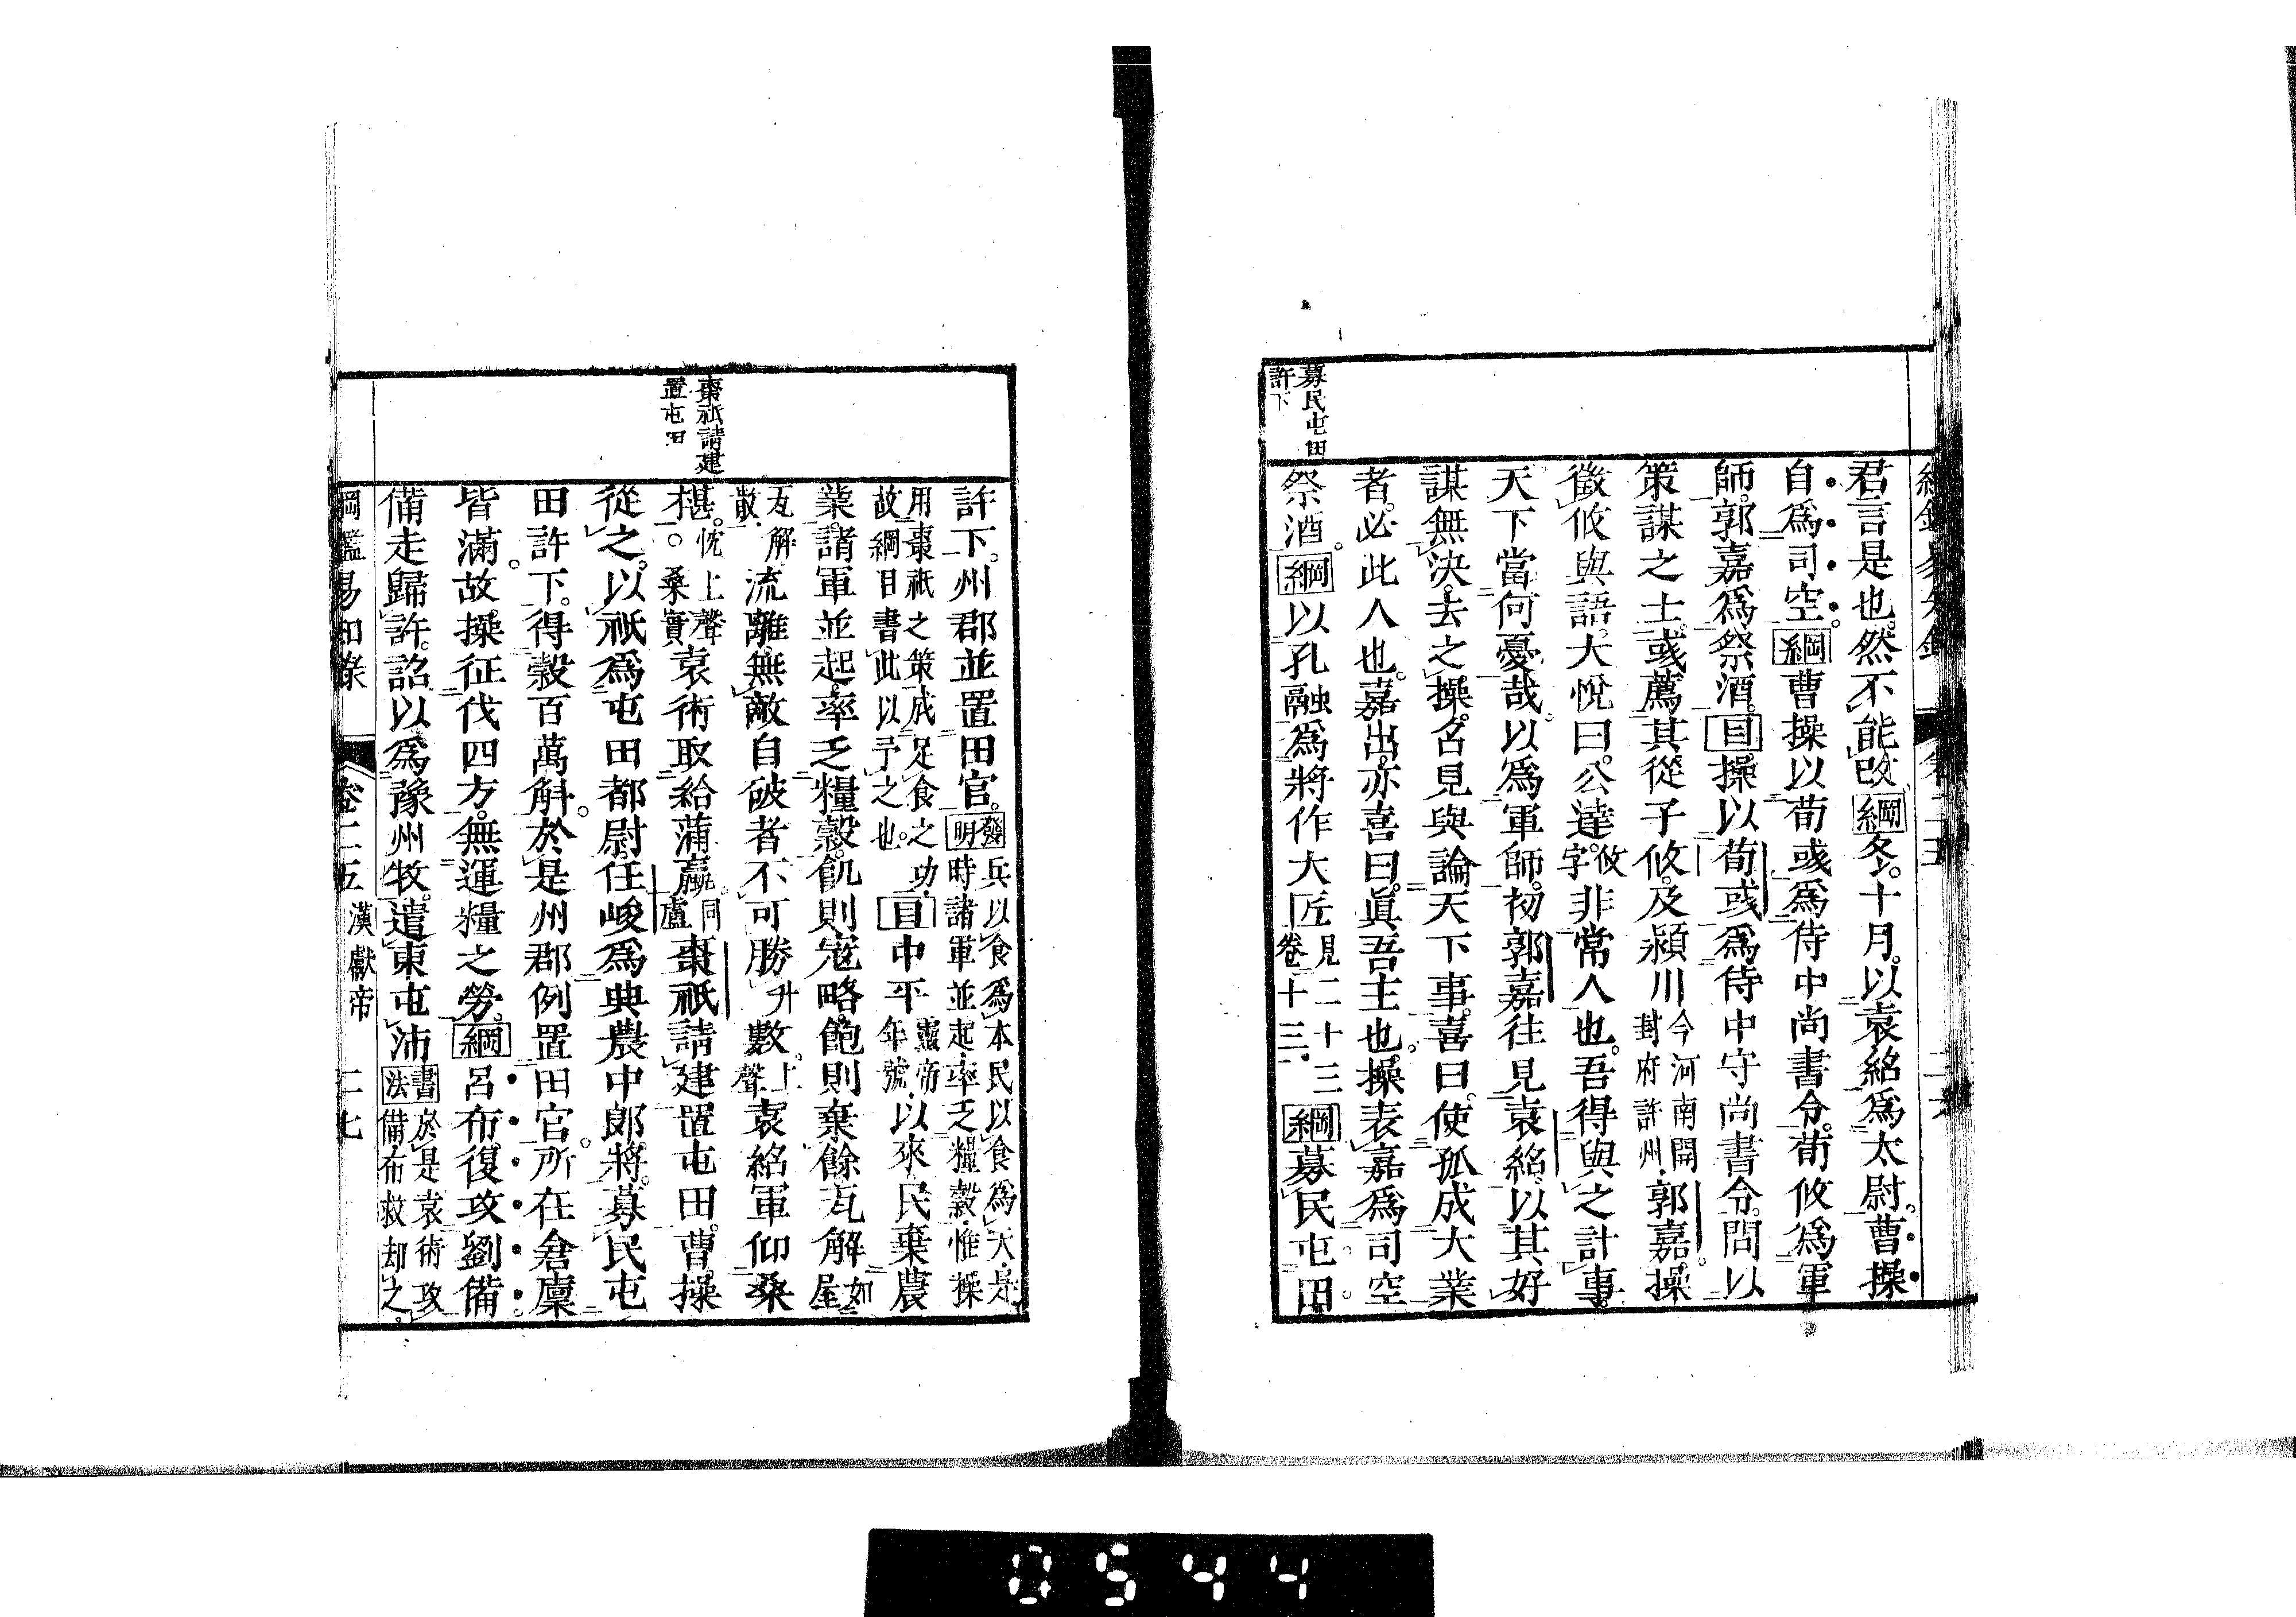 君言是也。然不能改。綱冬。十月。以袁紹爲太尉。曹操
自爲司空。綱曹操以荀彧爲侍中尚書令。荀攸爲軍
師。郭嘉爲祭酒。目操以荀彧爲侍中守尚書令。問以
策謀之士。彧薦其從子攸。及潁川今河南開封府許州。郭嘉。操
徵攸與語。大悅曰。公達攸字。非常人也。吾得與之計事。
天下當何憂哉。以爲軍師。初郭嘉往見袁紹。以其好
謀無決。去之。操召見與論天下事。喜曰。使孤成大業
者。必此人也。嘉出。亦喜曰。眞吾主也。操表嘉爲司空
祭酒。綱以孔融爲將作大匠見二十三卷十三。綱募民屯田
募民屯田
許下
許下。州郡並置田官。發明兵以食爲本民以食爲天。是時諸軍並起率乏糧穀。惟操
用棗祗之策成足食之功。故綱目書此以予之也。目中平靈帝年號。以來民棄農
業。諸軍並起。率乏糧穀。飢則寇略。飽則棄餘。瓦解如屋
瓦解散。流離。無敵自破者不可勝升數。上聲袁紹軍仰桑
椹。忱上聲。桑實袁術取給蒲蠃。同盧棗祗請建置屯田。曹操
從之。以祗爲屯田都尉。任峻爲典農中郎將。募民屯
田許下。得穀百萬斛。於是州郡例置田官。所在倉廩
皆滿。故操征伐四方。無運糧之勞。綱呂布復攻劉備。
備走歸許。詔以爲豫州牧。遣東屯沛書法於是袁術攻備布救却之。
棗祗請建
置屯田
綱鑑易知錄 卷二五 漢獻帝 二七